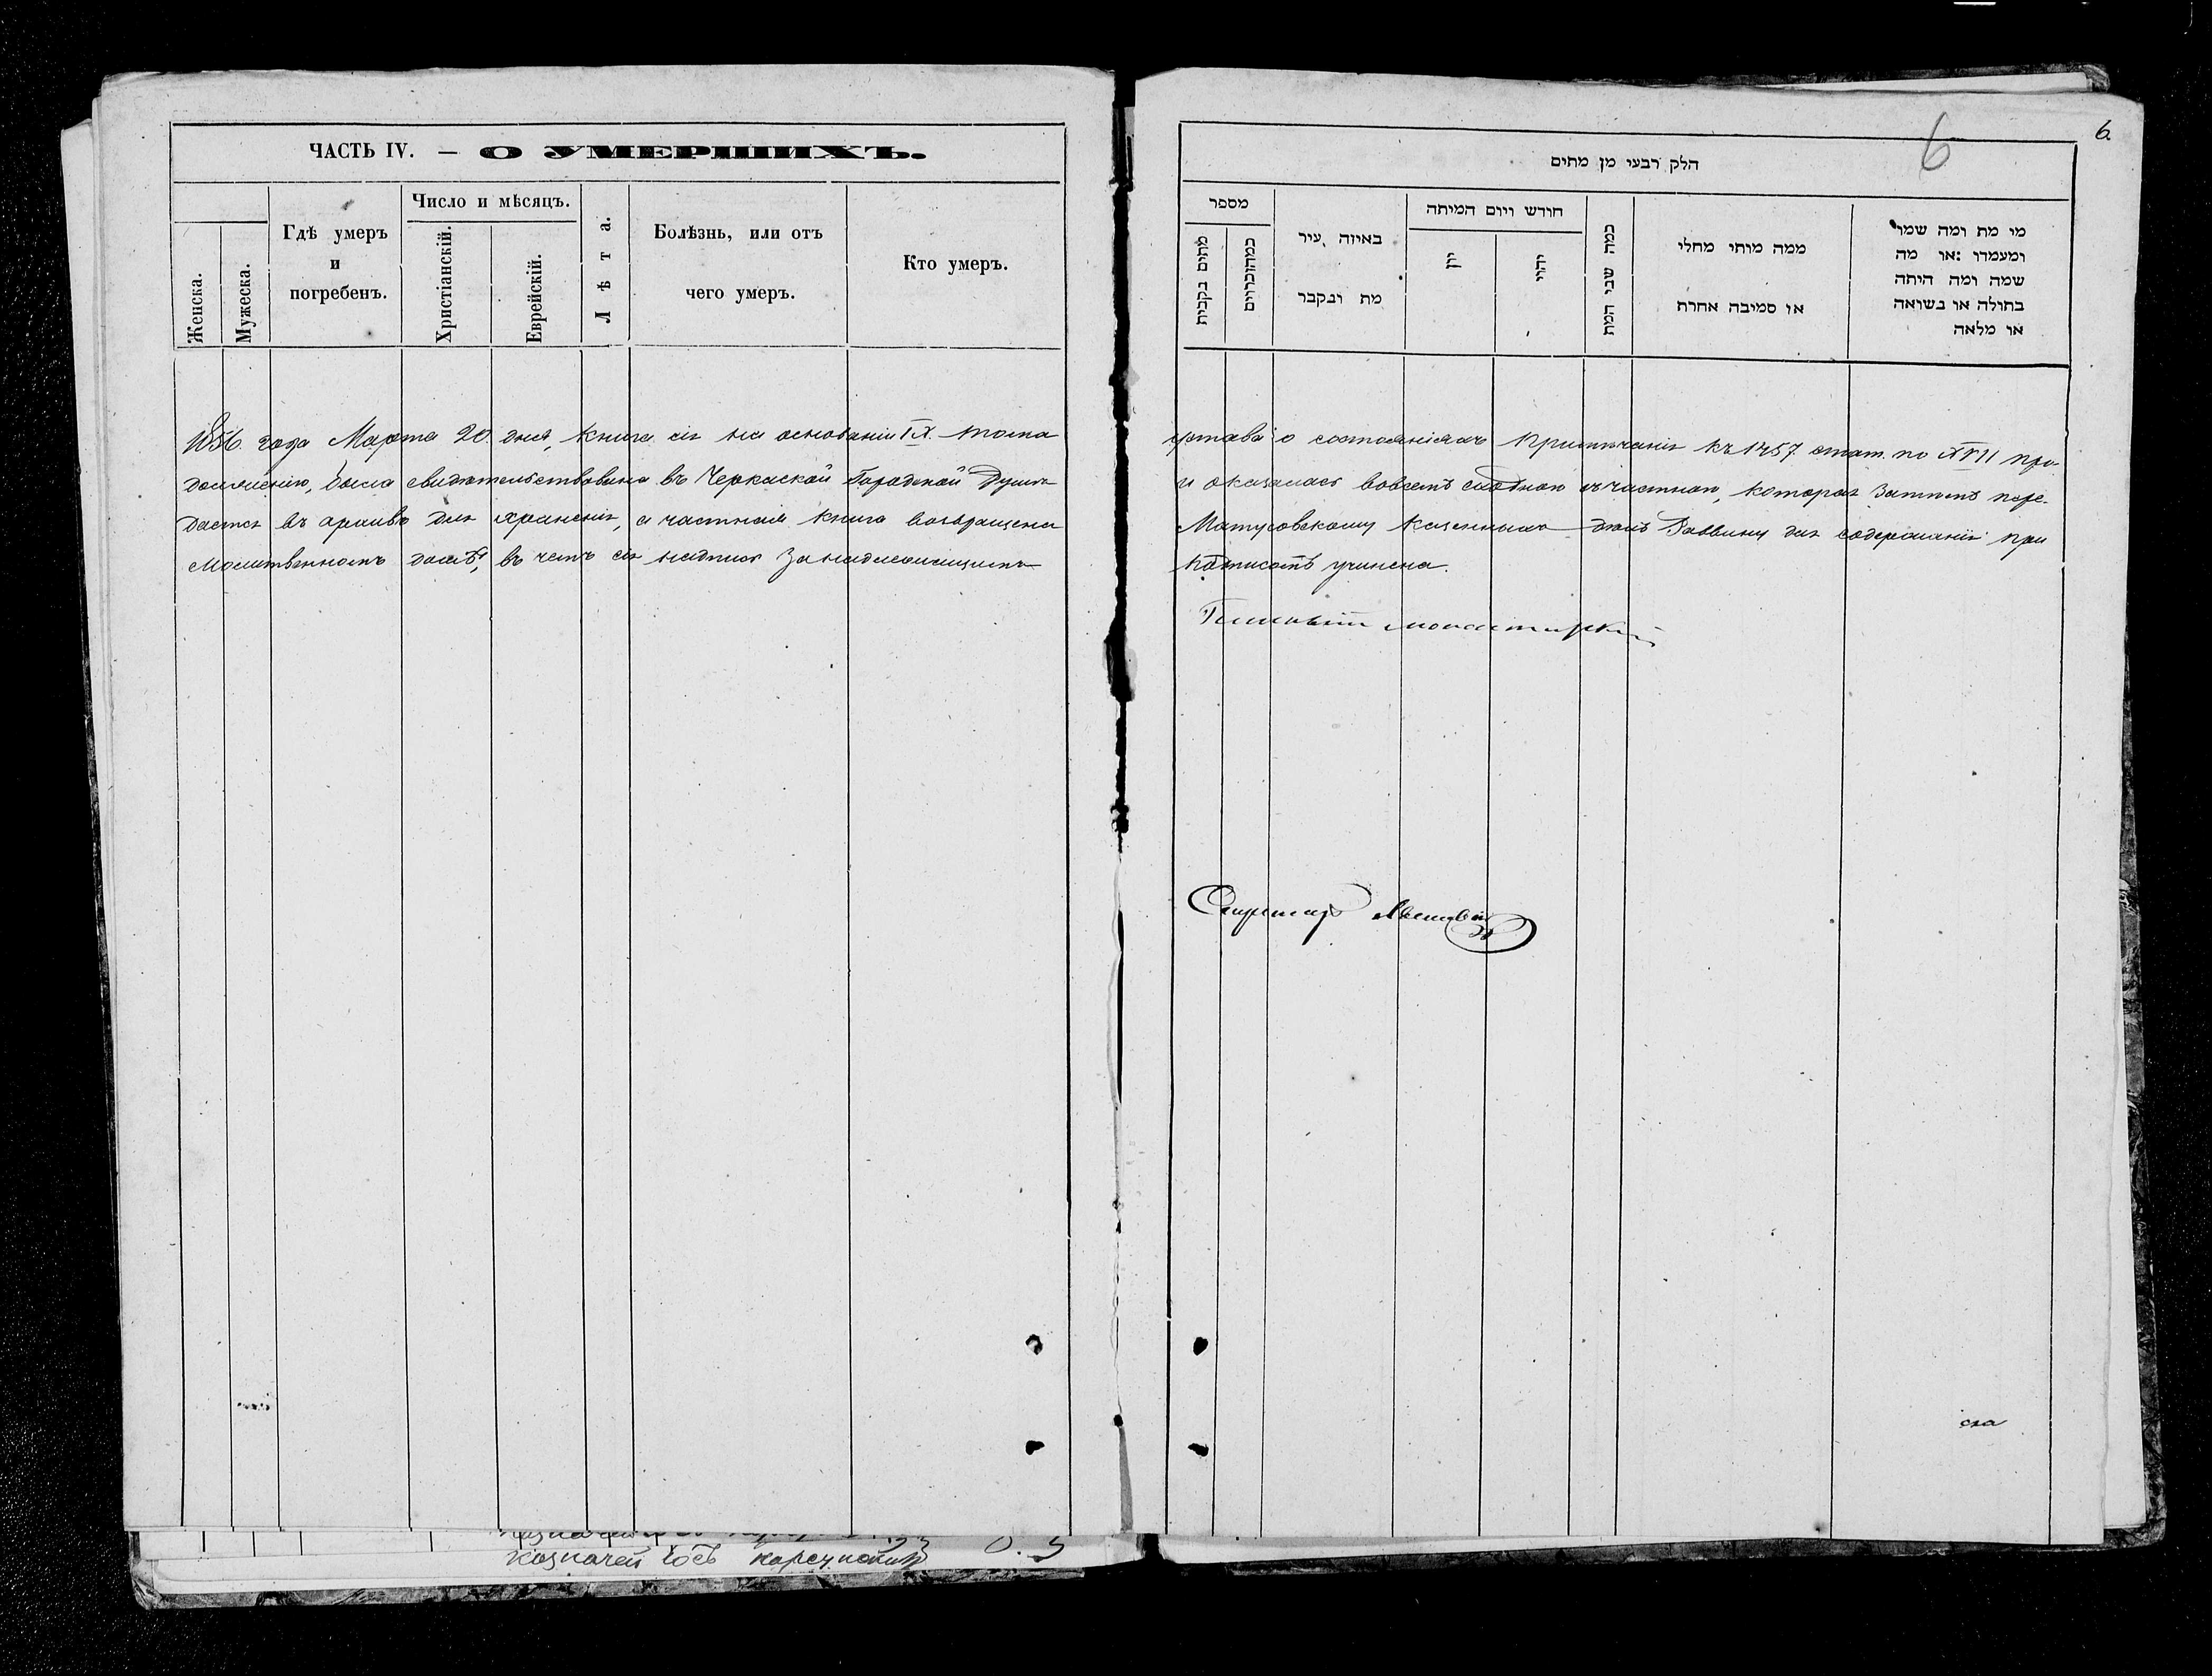 ЧАСТЬ IV. — О УМЕРШИХЪ.
Женска.
Мужеска.
Гдѣ умеръ
и
погребенъ.
Число и мѣсяцъ.
Христіанскій.
Еврейскій.
Лѣта.
Болѣзнь, или отъ
чего умеръ.
Кто умеръ.
1856 года Марта 20 дня, книга сія на основаніи IX. тома
должснію, была свидѣтельствована въ Черкаской Городской Думѣ
дается въ архивъ для храненія, а частная книга возвращена
Молитвенномъ домѣ, въ чемъ сія надпись за надлежащимъ
6
6.
חלק רבעי מן מתים
מספר
מתים נקבות
באיזה עיר
מת ונקבר
חודש ויום המיתה
יון
יהוי
כמה שני המת
ממה מותי מחלי
או סמיבה אחרת
מי מת ומה שמו
ומעמדו :או מה
שמה ומה היתה
בתולה או נשואה
או מלאה
устава о состояніяхъ примѣчанія къ 1457 стат. по XVII про-
и оказалась вовсемъ сходною съ частною, которая затѣмъ пере-
Матусовскому казенному Раввину для содержанія при
подписомъ учинена.
Секретарь
ска
казначей Іось